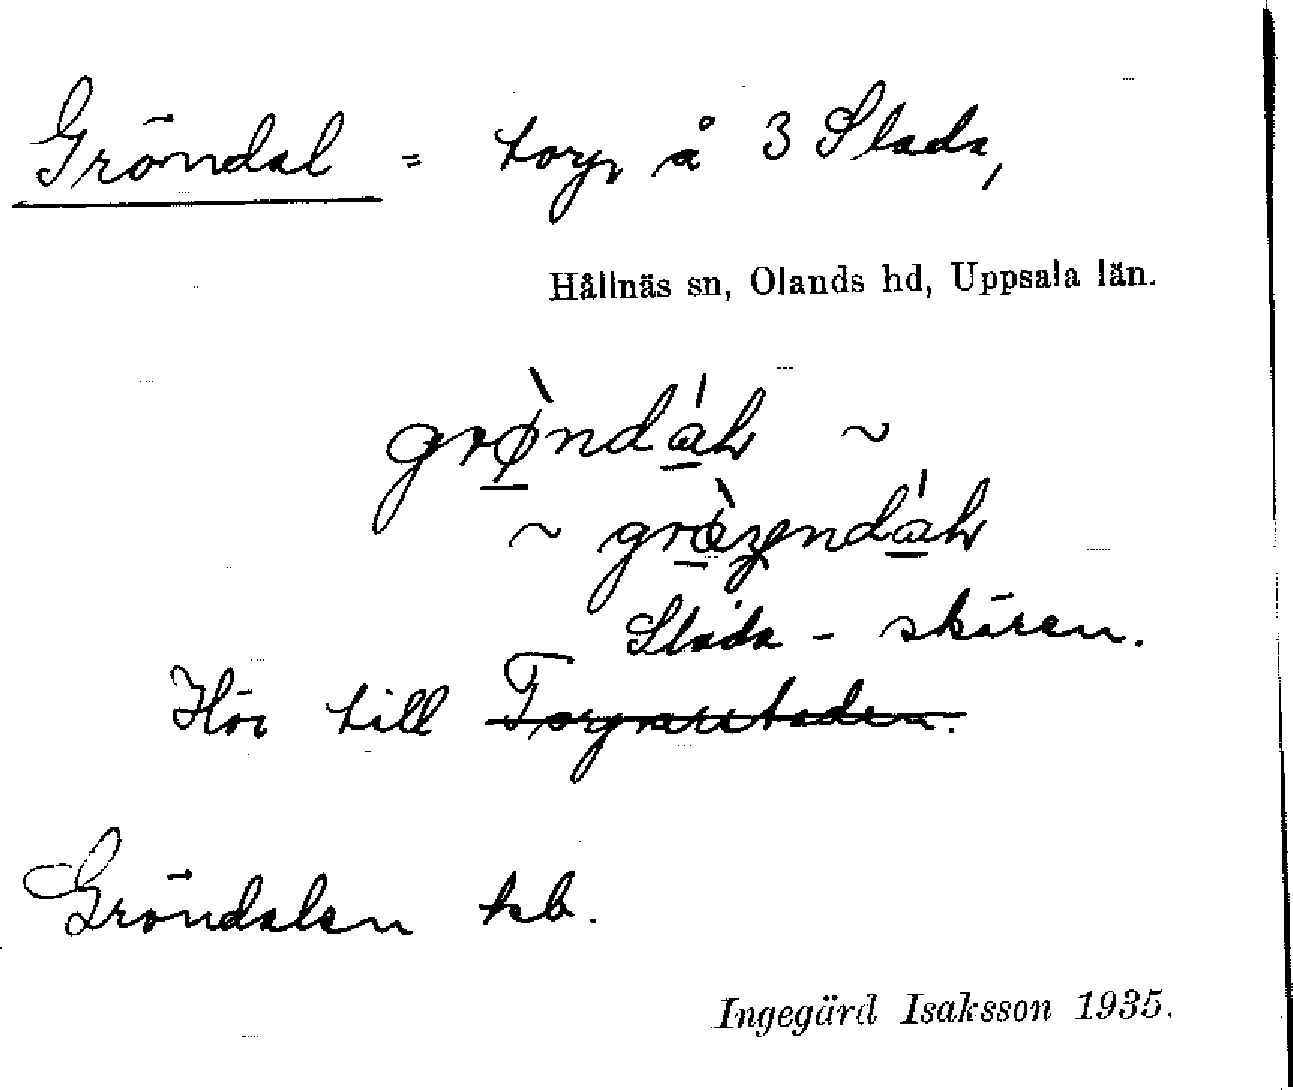 Gröndal = torp å 3 Slada,
Hållnäs sn, Olands hd, Uppsala län.
grø̀ndáL ~
~ grøӡndáL
Slada - skären.
Hör till Torparstaden.
Gröndalen kb.
Ingegärd Isaksson 1935.